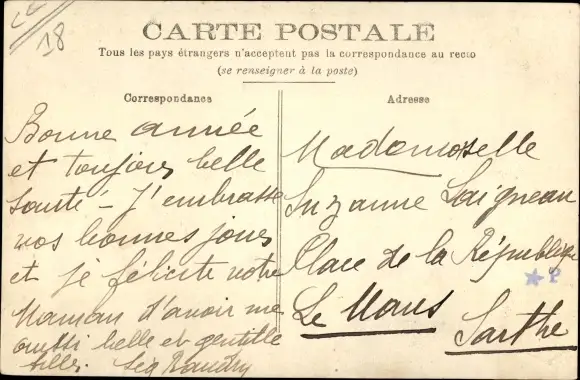 18
CARTE POSTALE
Tous les pays étrangers n'acceptent pas la correspondance au recto
(se renseigner à la poste)
Correspondance
Bonne année
et toujours belle
santé - J'embrasse
vos bonnes joues
et je félicite votre
Maman d'avoir une
aussi belle et gentille
fille.
Adresse
Mademoiselle
Suzanne Saigneau
Place de la République
Le Mans
Sarthe